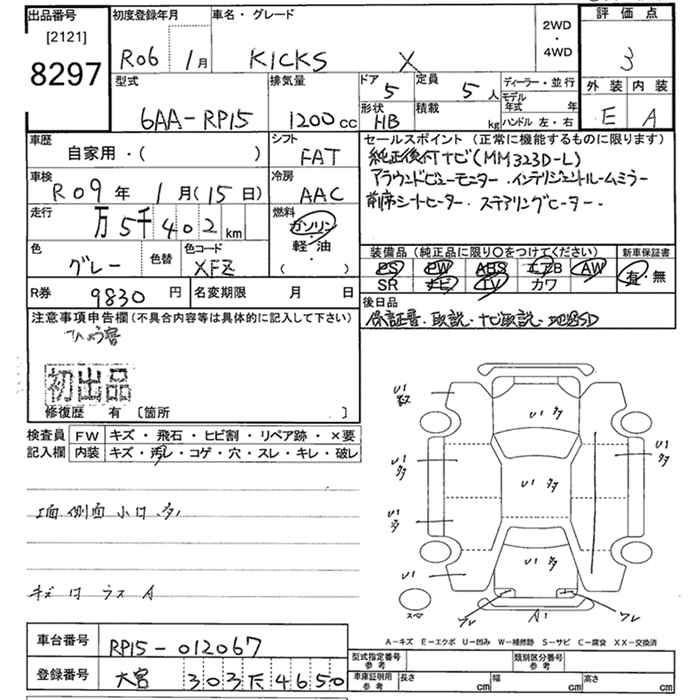 出品番号
[2121]
8297
初度登録年月
R06 1月
車名・グレード
KICKS X
2WD
・
4WD
評価点
3
外装 内装
E A
型式
6AA-RP15
排気量
1200cc
ドア
5
定員
5人
形状
HB
積載
kg
ディーラー・並行
モデル年式 年
ハンドル 左・右
車歴
自家用・( )
シフト
FAT
車検
R09年 1月(15日)
冷房
AAC
走行
万5千402km
燃料
ガソリン
軽・油
( )
色
グレー
色替
色コード
XFZ
セールスポイント (正常に機能するものに限ります)
純正後付ナビ(MM323D-L)
アラウンドビューモニター・インテリジェントルームミラー
前席シートヒーター・ステアリングヒーター・
装備品 (純正品に限り○をつけてください)
PS PW ABS エアB AW
SR ナビ TV カワ
新車保証書
有・無
R券 9830円
名変期限 月 日
後日品
保証書・取説・ナビ取説・地図SD
注意事項申告欄(不具合内容等は具体的に記入して下さい)
ひょう害
初出品
修復歴 有 [箇所 ]
検査員
記入欄
FW キズ・飛石・ヒビ割・リペア跡・×要
内装 キズ・汚レ・コゲ・穴・スレ・キレ・破レ
キズ
A
U1
多
U1 タタ
U1 タタ
U1 多
A1
スペ
A−キズ E−エクボ U−凹み W−補修跡 S−サビ C−腐食 XX−交換済
車台番号
RP15-012067
登録番号
大宮 303 4650
型式指定番号
参考
類別区分番号
参考
車庫証明用
参考
長さ cm
幅 cm
高さ cm